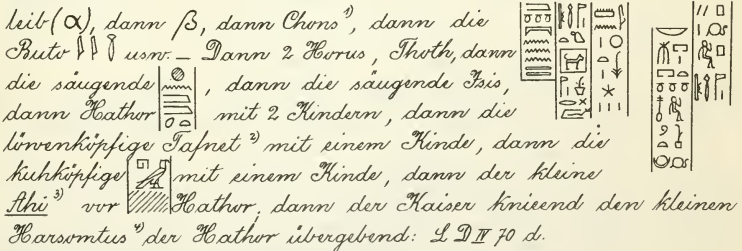 leib (α), dann β, dann Chons ¹⁾, dann die
Buto usw. — Dann 2 Horus, Thoth, dann
die säugende , dann die säugende Isis,
dann Hathor mit 2 Kindern, dann die
löwenköpfige Tafnet ²⁾ mit einem Kinde, dann die
kuhköpfige mit einem Kinde, dann der kleine
Ahi ³⁾ vor Hathor, dann der Kaiser knieend den kleinen
Harsomtus ⁴⁾ der Hathor übergebend: L D IV 70 d.